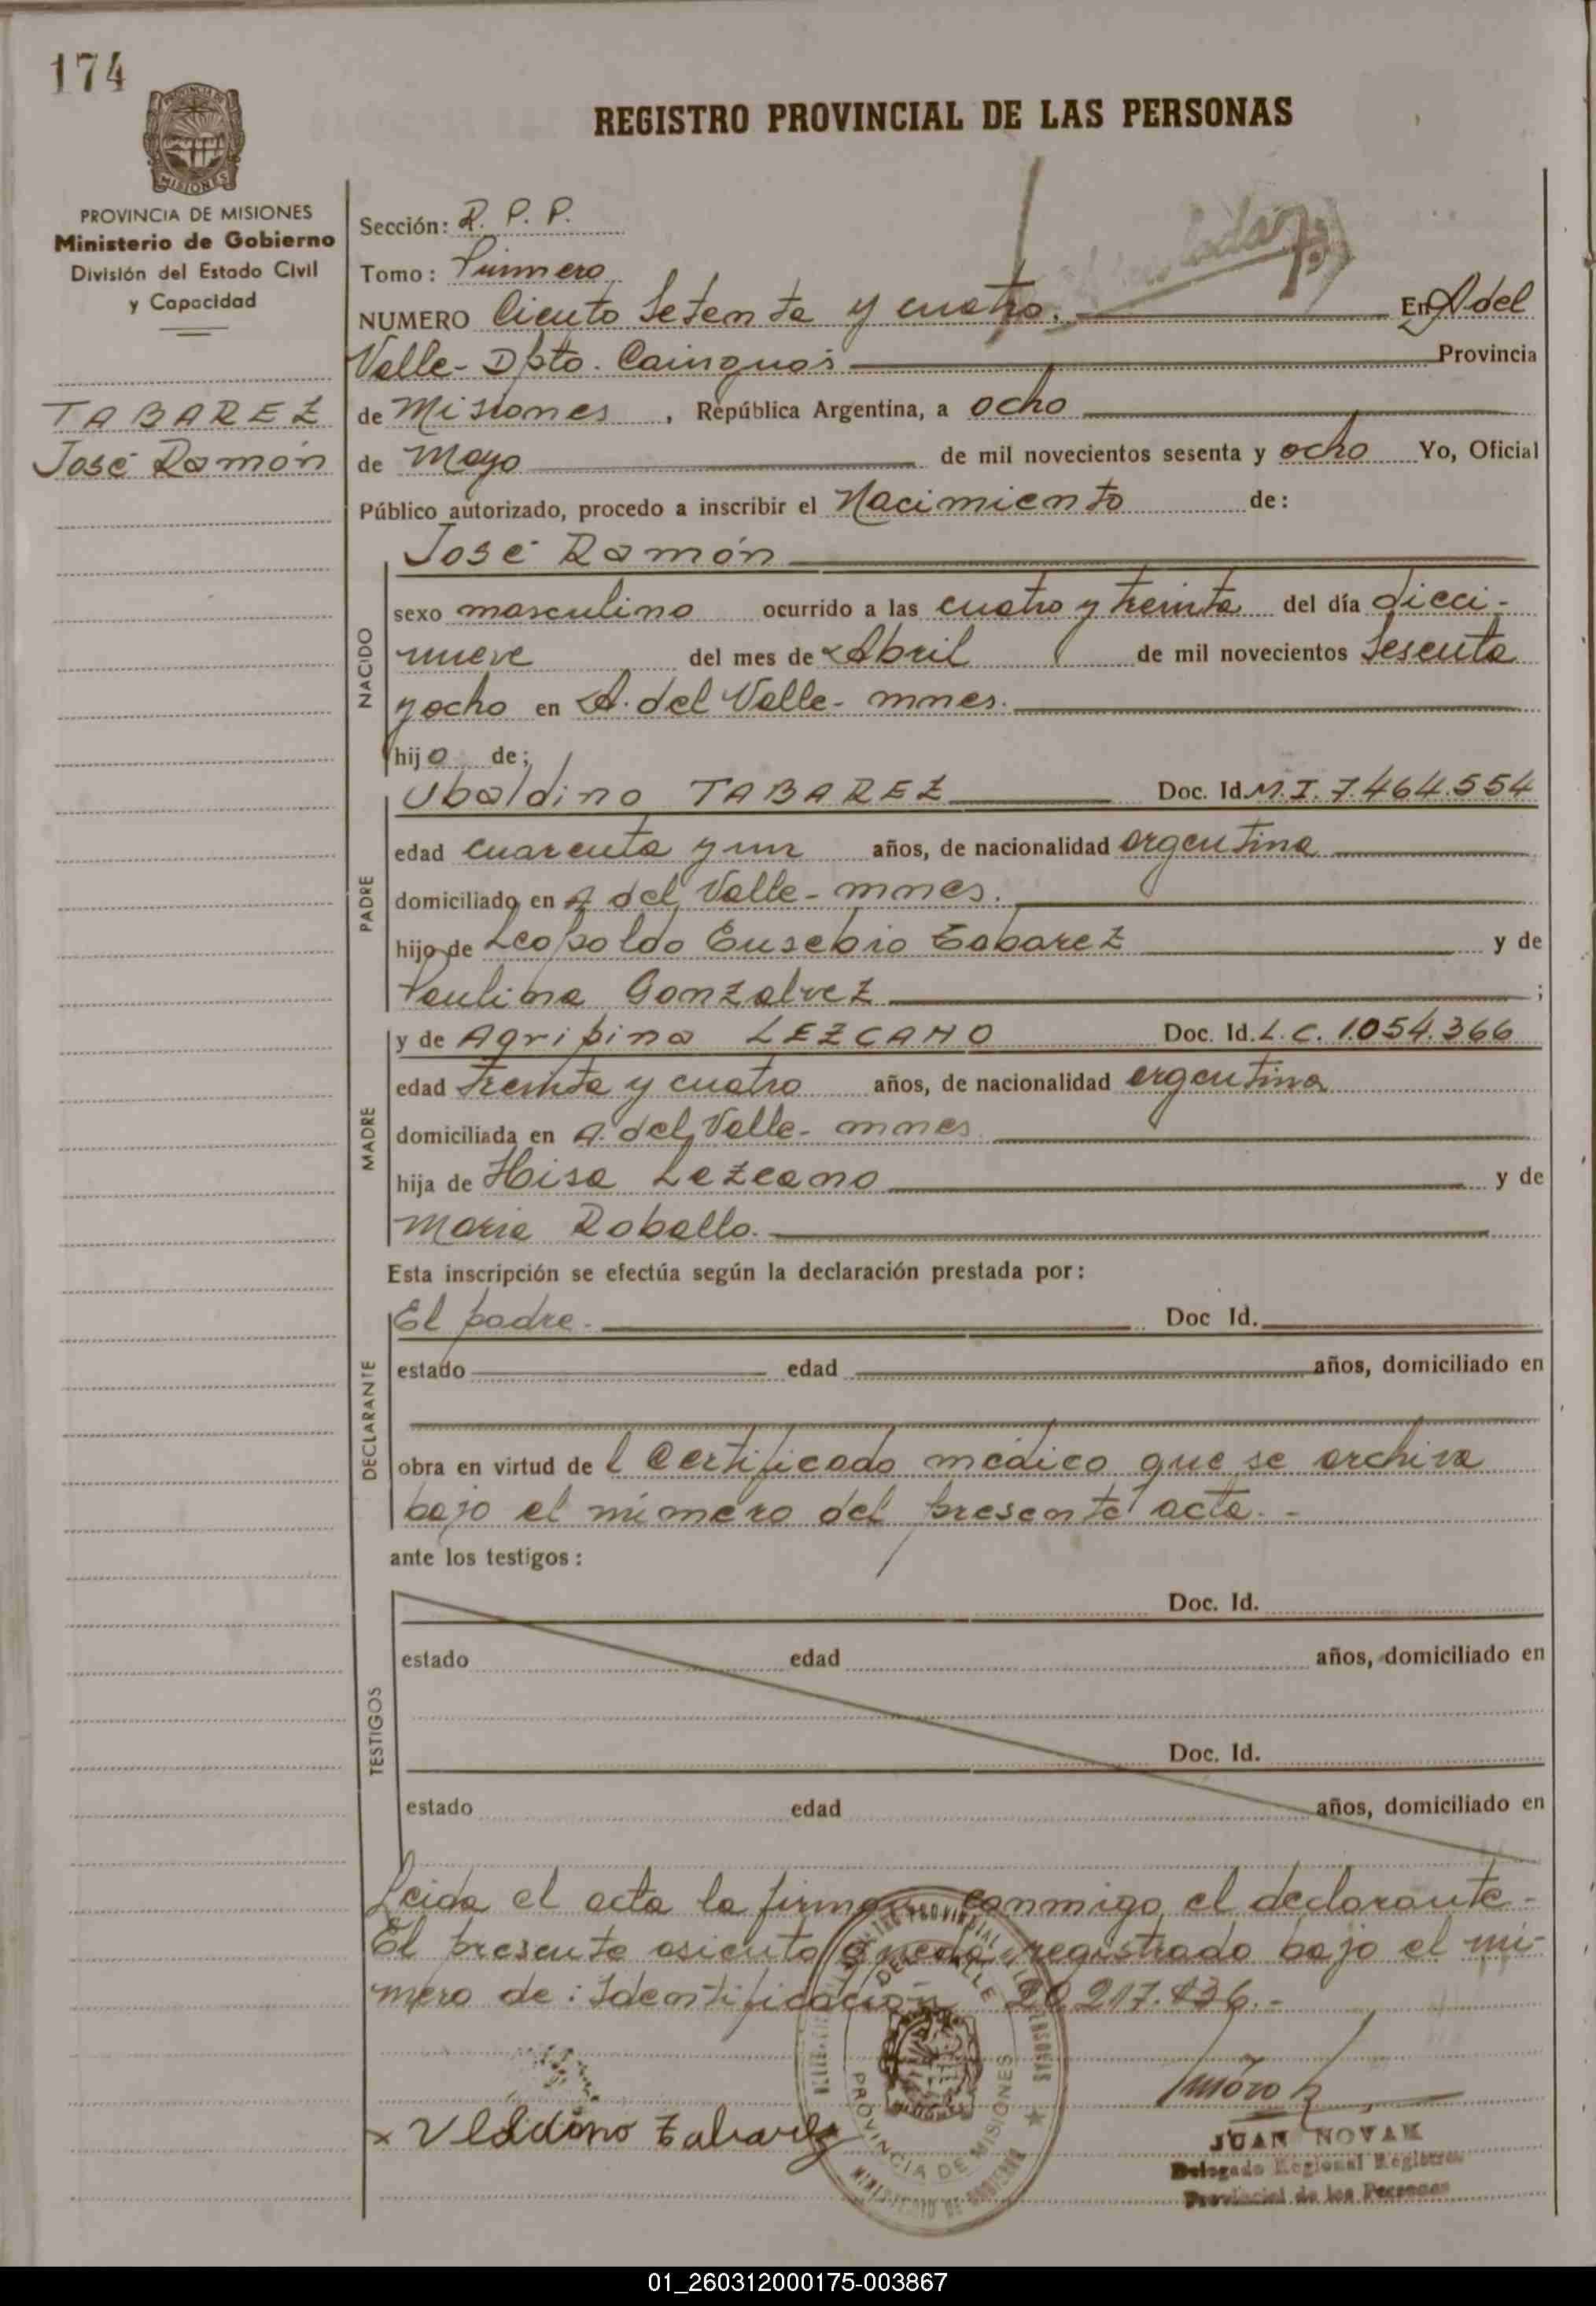 174
REGISTRO PROVINCIAL DE LAS PERSONAS
PROVINCIA DE MISIONES
Ministerio de Gobierno
División del Estado Civil
y Capacidad
TABAREZ
José Ramón
Sección: R. P. P.
Tomo: Primero
NUMERO Ciento Setenta y cuatro. En A del
Valle - Dpto. Cainguás Provincia
de Misiones, República Argentina, a ocho
de Mayo de mil novecientos sesenta y ocho Yo, Oficial
Público autorizado, procedo a inscribir el Nacimiento de:
NACIDO
José Ramón
sexo masculino ocurrido a las cuatro y treinta del día dieci-
nueve del mes de Abril de mil novecientos Sesenta
y ocho en A. del Valle - mnes.
hijo de;
PADRE
Ubaldino TABAREZ Doc. Id. M.I. 7.464.554
edad cuarenta y un años, de nacionalidad argentina
domiciliado en A del Valle - mnes.
hijo de Leopoldo Eusebio Tabarez y de
Paulina Gonzalvez ;
MADRE
y de Agripina LEZCANO Doc. Id. L.C. 1.054.366
edad treinta y cuatro años, de nacionalidad argentina
domiciliada en A. del Valle - mnes
hija de Lezcano y de
Maria Roballo.
Esta inscripción se efectúa según la declaración prestada por:
DECLARANTE
El padre. Doc Id.
estado edad años, domiciliado en
obra en virtud de l Certificado médico que se archiva
bajo el número del presente acta. -
ante los testigos:
TESTIGOS
Doc. Id.
estado edad años, domiciliado en
Doc. Id.
estado edad años, domiciliado en
Leida el acta la firma conmigo el declarante -
El presente asiento queda registrado bajo el nú-
mero de: Identificación 20.217.
x Tabarez
PROVINCIA DE MISIONES
JUAN NOVAK
Delegado Regional Registro
Provincial de las Personas
01_260312000175-003867